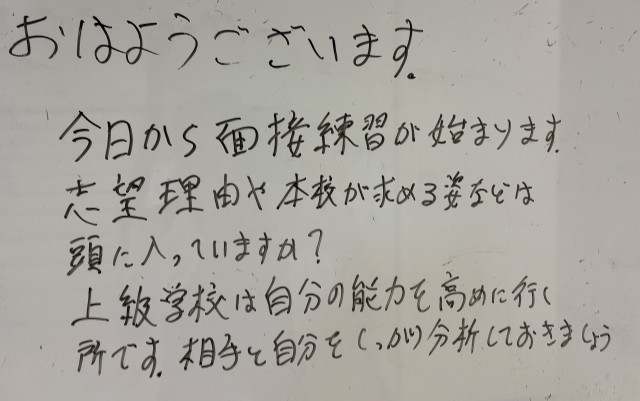 おはようございます.
今日から面接練習が始まります.
志望理由や本校が求める姿などは
頭に入っていますか?
上級学校は自分の能力を高めに行く
所です.相手と自分をしっかり分析しておきましょう